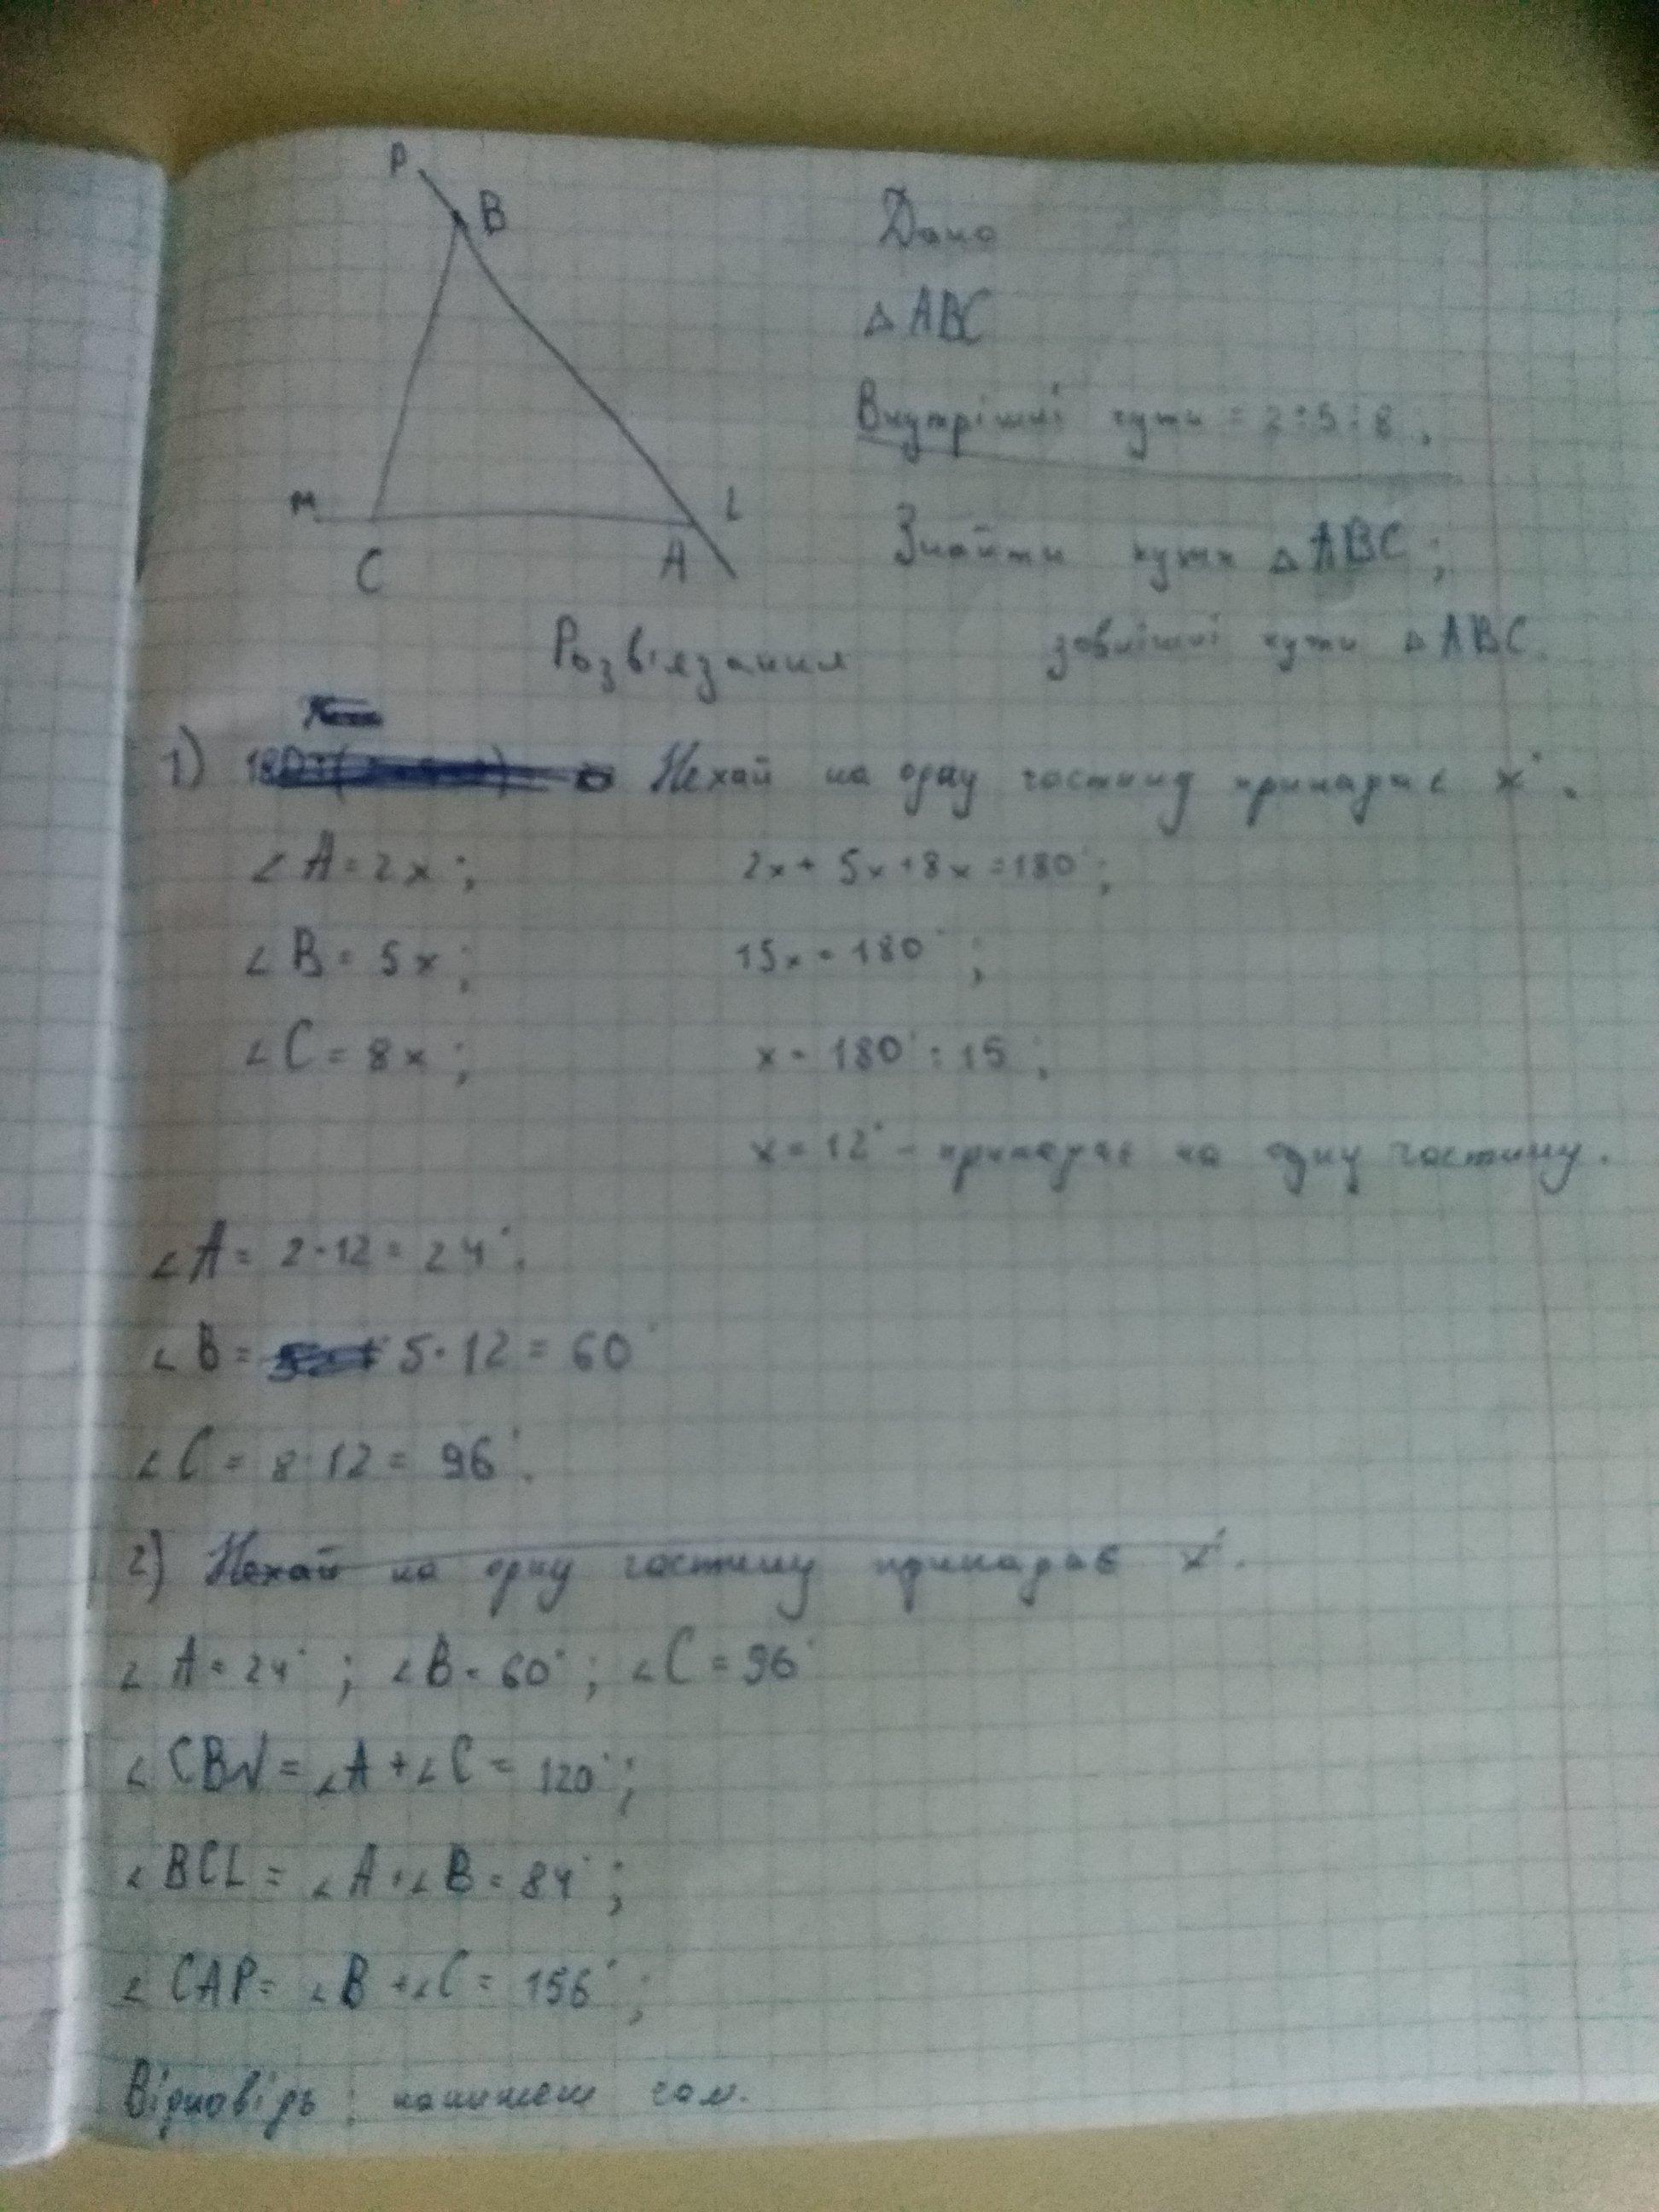 P
B
M
L
C
A
Дано
△ABC
Внутрішні кути = 2:5:8.
Знайти кути △ABC;
зовнішні кути △ABC.
Розв'язання
1) Нехай на одну частину припадає x°.
∠A = 2x; 2x + 5x + 8x = 180°;
∠B = 5x; 15x = 180°;
∠C = 8x; x = 180° : 15;
x = 12° - припадає на одну частину.
∠A = 2·12 = 24°.
∠B = 5·12 = 60°
∠C = 8·12 = 96°.
2) Нехай на одну частину припадає x°.
∠A = 24°; ∠B = 60°; ∠C = 96°
∠CBN = ∠A + ∠C = 120°;
∠BCL = ∠A + ∠B = 84°;
∠CAP = ∠B + ∠C = 156°;
Відповідь: напишеш сам.